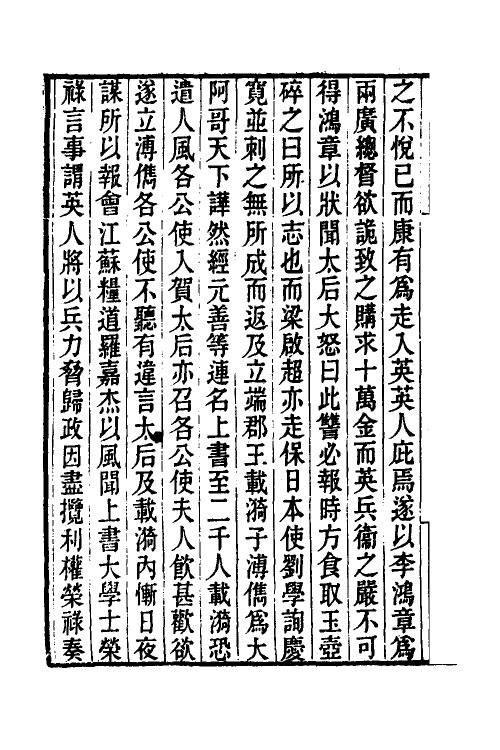 之不悅已而康有爲走入英英人庇焉遂以李鴻章爲
兩廣總督欲詭致之購求十萬金而英兵衞之嚴不可
得鴻章以狀聞太后大怒曰此讐必報時方食取玉壺
碎之曰所以志也而梁啟超亦走保日本使劉學詢慶
寬並刺之無所成而返及立端郡王載漪子溥儁爲大
阿哥天下譁然經元善等連名上書至二千人載漪恐
遣人風各公使入賀太后亦召各公使夫人飮甚歡欲
遂立溥儁各公使不聽有違言太后及載漪內慚日夜
謀所以報會江蘇糧道羅嘉杰以風聞上書大學士榮
祿言事謂英人將以兵力脅歸政因盡攬利權榮祿奏